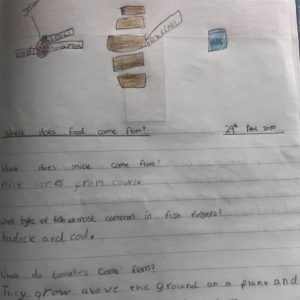 Where does food come from?
29th
Where does milk come from?
Milk comes from cows.
What type of fish is most common in fish fingers?
hadock and cod.
Where do tomatoes come from?
They grow above the ground on a plant and